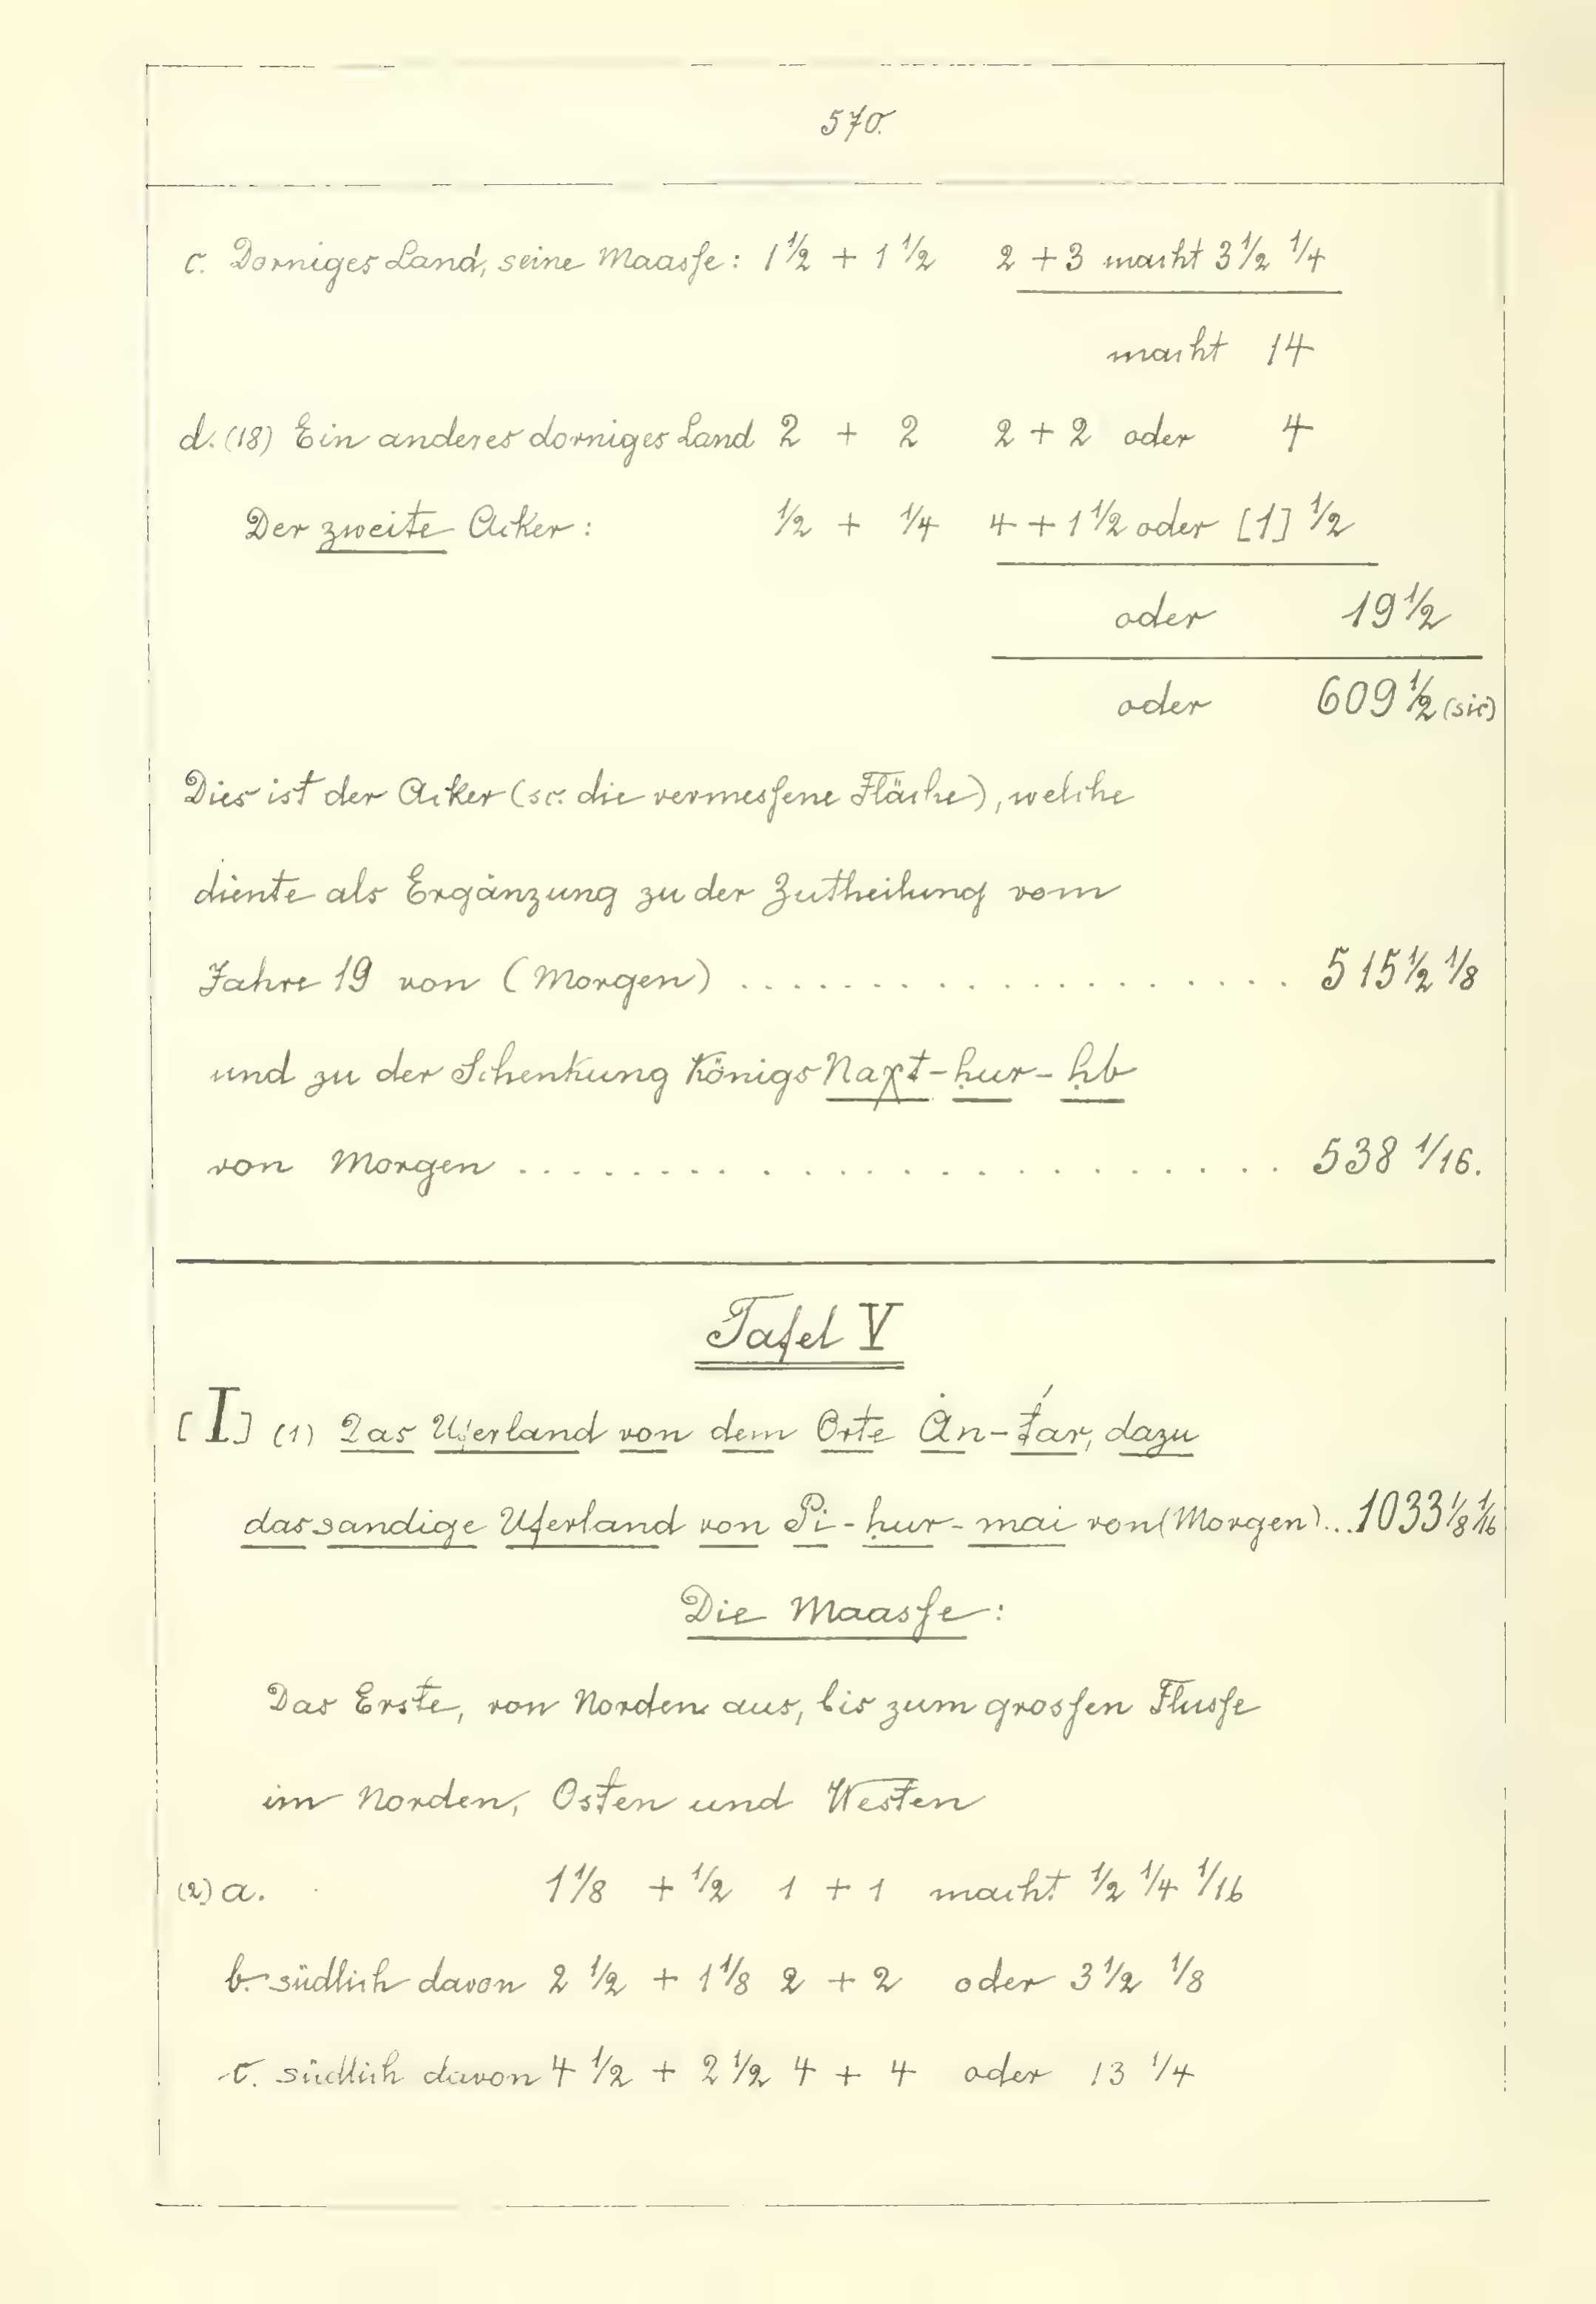 570.
c. Dorniges Land, seine Maasse: 1 1/2 + 1 1/2 2 + 3 macht 3 1/2 1/4
macht 14
d. (18) Ein anderes dorniges Land 2 + 2 2 + 2 oder 4
Der zweite Acker: 1/2 + 1/4 4 + 1 1/2 oder [1] 1/2
oder 19 1/2
oder 609 1/2 (sic)
Dies ist der Acker (sc. die vermessene Fläche), welche
diente als Ergänzung zu der Zutheilung vom
Jahre 19 von (Morgen) .................... 515 1/2 1/8
und zu der Schenkung Königs Naχt-ḥur-ḥb
von Morgen ........................ 538 1/16.
Tafel V
[I] (1) Das Uferland von dem Orte Ȧn-t́ar, dazu
das sandige Uferland von Pi-ḥur-mai von (Morgen)... 1033 1/8 1/16
Die Maasse:
Das Erste, von Norden aus, bis zum grossen Flusse
im Norden, Osten und Westen
(2) a. 1 1/8 + 1/2 1 + 1 macht 1/2 1/4 1/16
b. südlich davon 2 1/2 + 1 1/8 2 + 2 oder 3 1/2 1/8
c. südlich davon 4 1/2 + 2 1/2 4 + 4 oder 13 1/4